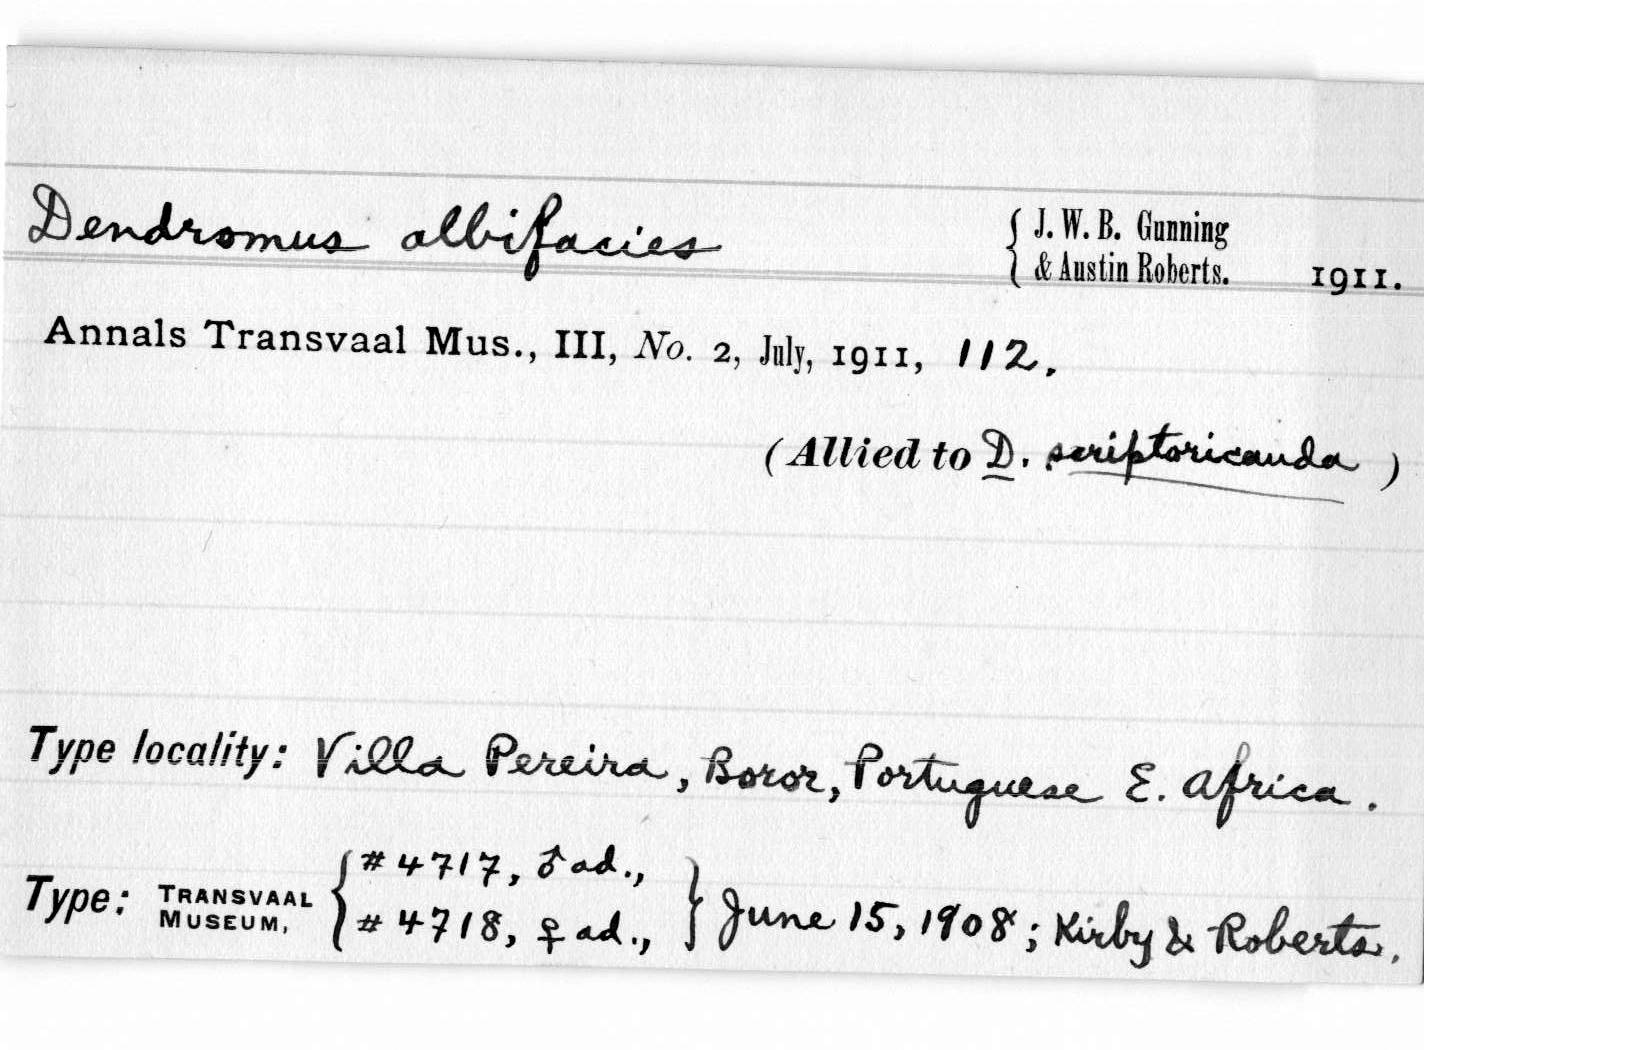 Dendromus albifacies { J. W. B. Gunning & Austin Roberts. 1911.
Annals Transvaal Mus., III, No. 2, July, 1911, 112.
(Allied to D. scriptoricauda )
Type locality: Villa Pereira, Boror, Portuguese E. Africa.
Type: TRANSVAAL MUSEUM, { #4717, ♂ ad.,
#4718, ♀ ad., } June 15, 1908; Kirby & Roberts.